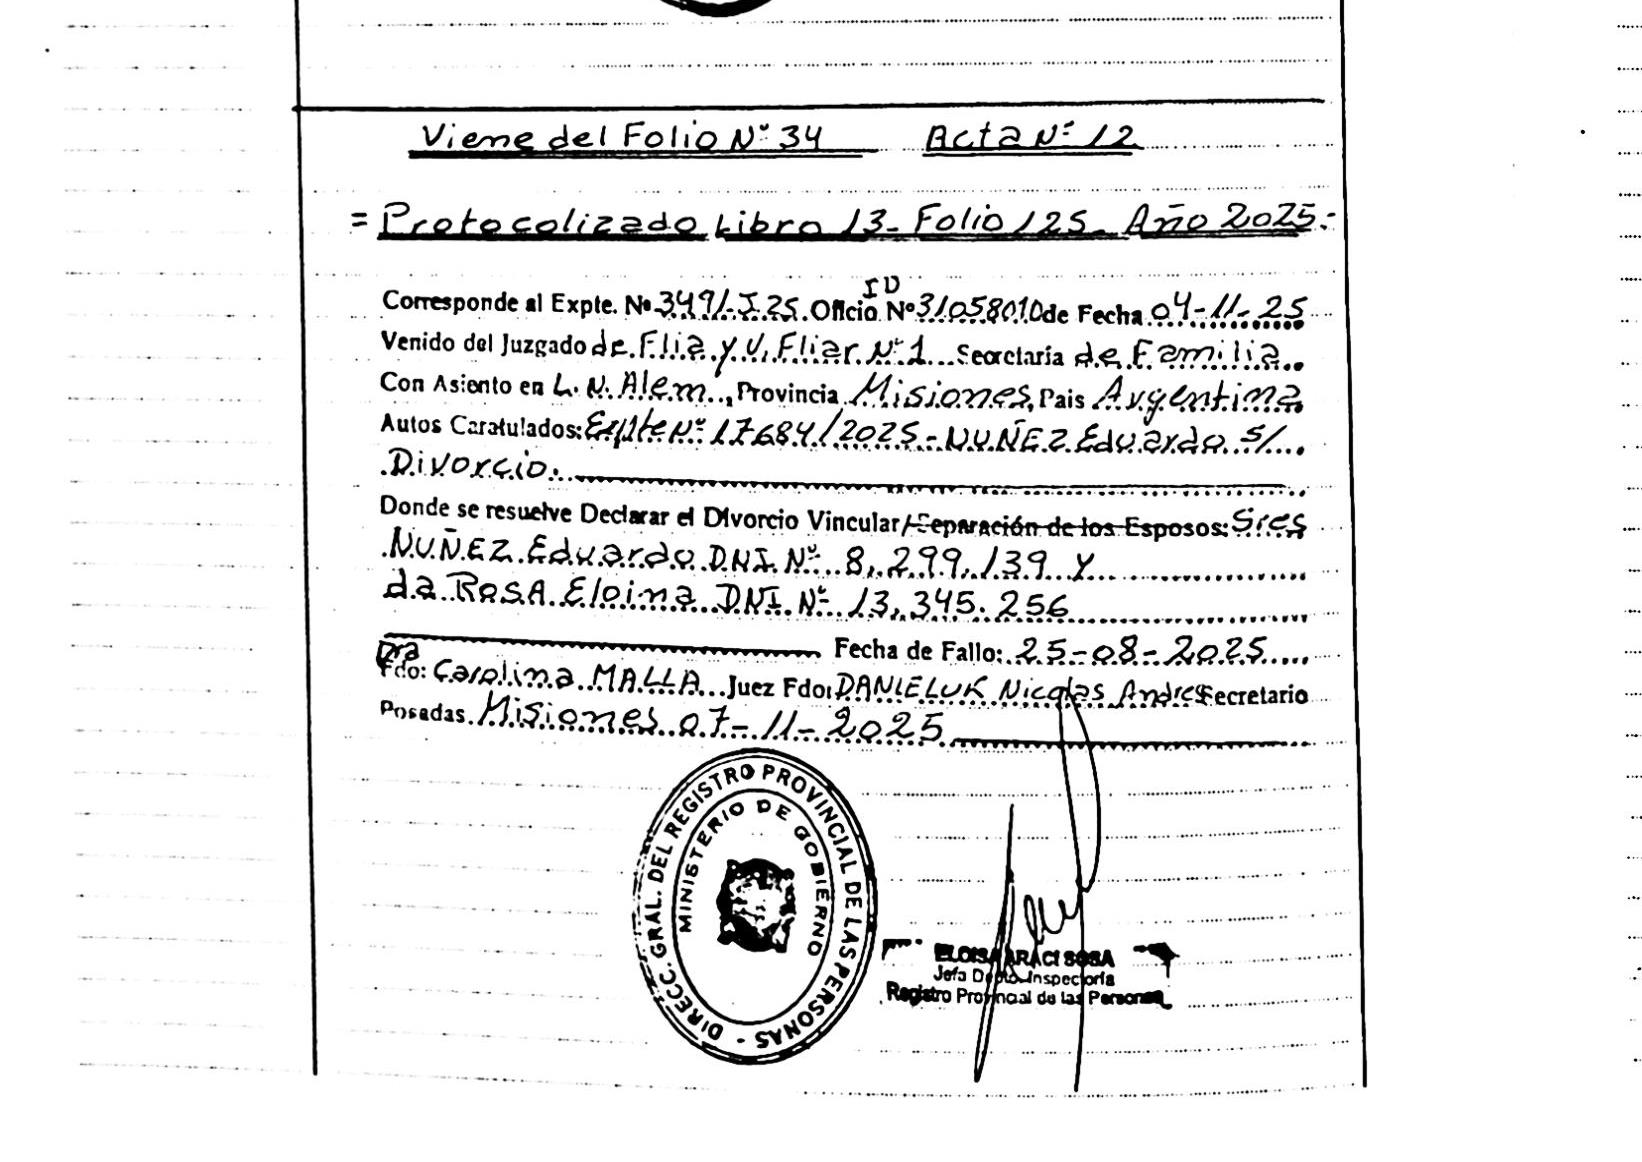 Viene del Folio Nº 34 Acta Nº 12
= Protocolizado Libro 13- Folio 125- Año 2025.-
ID
Corresponde al Expte. Nº 349/-I-25. Oficio Nº 31058010 de Fecha 04-11-25
Venido del Juzgado de Flia y V. Fliar Nº 1 Secretaría de Familia
Con Asiento en L. N. Alem, Provincia Misiones, Pais Argentina
Autos Caratulados: Expte Nº 17684/2025- NUÑEZ Eduardo S/
Divorcio.
Donde se resuelve Declarar el Divorcio Vincular/Separación de los Esposos: Sres
NUÑEZ Eduardo DNI Nº 8,299,139 y
da ROSA Eloina DNI Nº 13,345.256
Fecha de Fallo: 25-08-2025
Dra
Fdo: Carolina MALLA Juez Fdo: DANIELUK Nicolas Andres Secretario
Posadas Misiones 07-11-2025
DIRECC. GRAL. DEL REGISTRO PROVINCIAL DE LAS PERSONAS -
MINISTERIO DE GOBIERNO
ELOISA ARACI SOSA
Jefa Depto. Inspectoria
Registro Provincial de las Personas